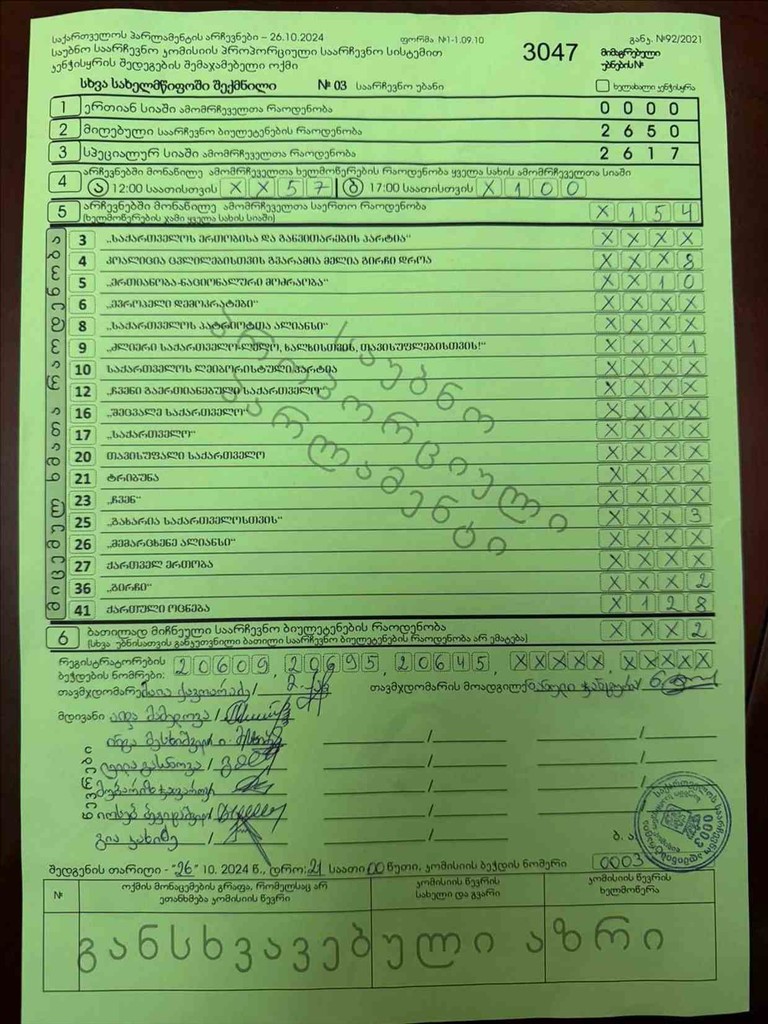 საქართველოს პარლამენტის არჩევნები – 26.10.2024 ფორმა №1-1.09.10 განკ. №92/2021
საუბნო საარჩევნო კომისიის პროპორციული საარჩევნო სისტემით 3047 მიმაგრებული
კენჭისყრის შედეგების შემაჯამებელი ოქმი უბნების №
სხვა სახელმწიფოში შექმნილი № 03 საარჩევნო უბანი ხელახალი კენჭისყრა
1 ერთიან სიაში ამომრჩეველთა რაოდენობა 0 0 0 0
2 მიღებული საარჩევნო ბიულეტენების რაოდენობა 2 6 5 0
3 სპეციალურ სიაში ამომრჩეველთა რაოდენობა 2 6 1 7
4 არჩევნებში მონაწილე ამომრჩეველთა ხელმოწერების რაოდენობა ყველა სახის ამომრჩეველთა სიაში
ა 12:00 საათისთვის X X 5 7 ბ 17:00 საათისთვის X 1 0 0
5 არჩევნებში მონაწილე ამომრჩეველთა საერთო რაოდენობა X 1 5 4
(ხელმოწერების ჯამი ყველა სახის სიაში)
მიცემულ ხმათა რაოდენობა
3 „საქართველოს ერთობისა და განვითარების პარტია“ X X X X
4 კოალიცია ცვლილებისთვის გვარამია მელია გირჩი დროა X X X 8
5 „ერთიანობა-ნაციონალური მოძრაობა“ X X 1 0
6 „ევროპელი დემოკრატები“ X X X X
8 „საქართველოს პატრიოტთა ალიანსი“ X X X X
9 „ძლიერი საქართველო-ლელო, ხალხისთვის, თავისუფლებისთვის!“ X X X 1
10 საქართველოს ლეიბორისტული პარტია X X X X
12 „ჩვენი გაერთიანებული საქართველო“ X X X X
16 „შეცვალე საქართველო“ X X X X
17 „საქართველო“ X X X X
20 თავისუფალი საქართველო X X X X
21 ტრიბუნა X X X X
23 „ჩვენ“ X X X X
25 „გახარია საქართველოსთვის“ X X X 3
26 „მემარცხენე ალიანსი“ X X X X
27 ქართველ ერთობა X X X X
36 „გირჩი“ X X X 2
41 ქართული ოცნება X 1 2 8
საუბნო
პროპორციული
პარლამენტი
6 ბათილად მიჩნეული საარჩევნო ბიულეტენების რაოდენობა X X X 2
(სხვა უბნისათვის განკუთვნილი ბათილი საარჩევნო ბიულეტენების რაოდენობა არ ემატება)
რეგისტრატორების
ბეჭდების ნომრები: 20609, 20695, 20645, XXXXX, XXXXX
თავმჯდომარე / თავმჯდომარის მოადგილე /
მდივანი /
წევრები
/ /
/ /
/ /
/ /
/ /
ბ. ა.
0003
შედგენის თარიღი - "26" 10. 2024 წ., დრო: 21 საათი 00 წუთი, კომისიის ბეჭდის ნომერი 0003
№ ოქმის მონაცემების გრაფა, რომელსაც არ კომისიის წევრის კომისიის წევრის
ეთანხმება კომისიის წევრი სახელი და გვარი ხელმოწერა
განსხვავებული აზრი